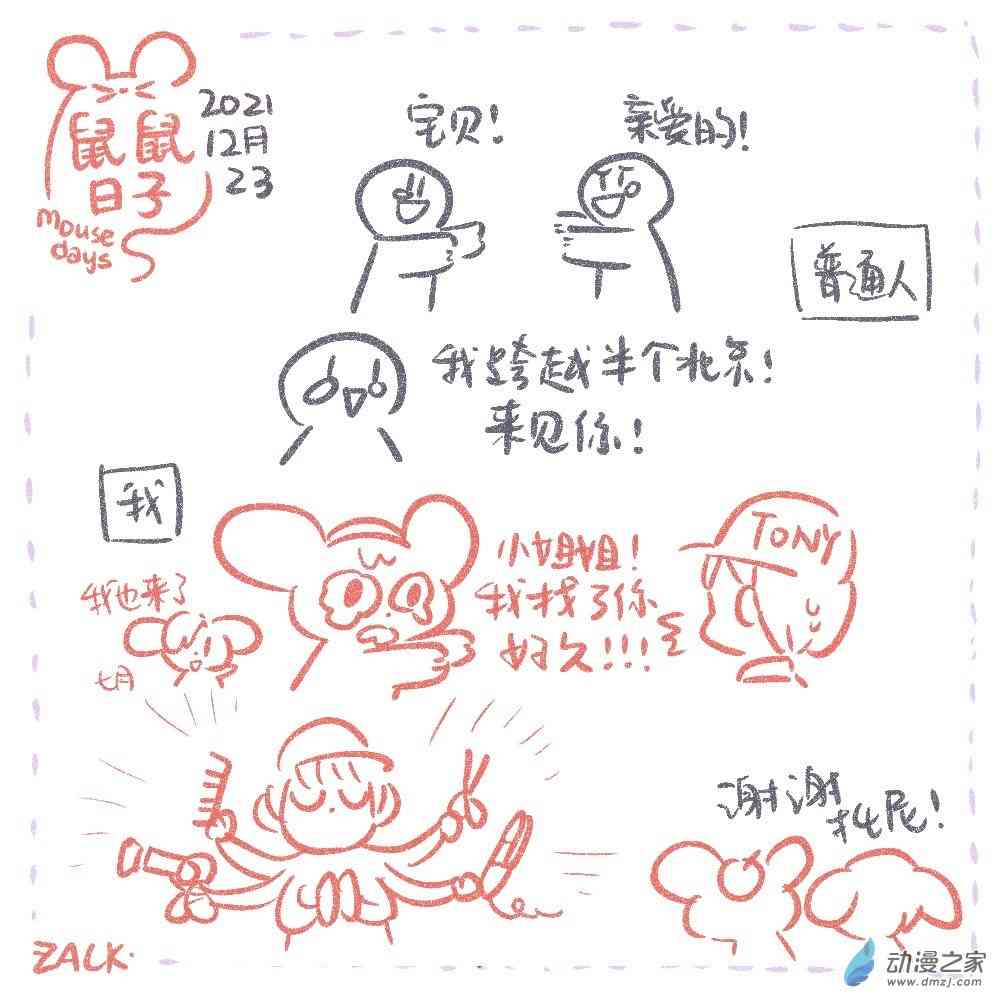 鼠鼠
日子
mouse
days
2021
12月
23
宝贝!
亲爱的!
普通人
我跨越半个北京!
来见你!
我
小姐姐!
我找了你
好久!!!
TONY
我也来了
七月
谢谢
托尼!
ZALK.
动漫之家
www.dmzj.com